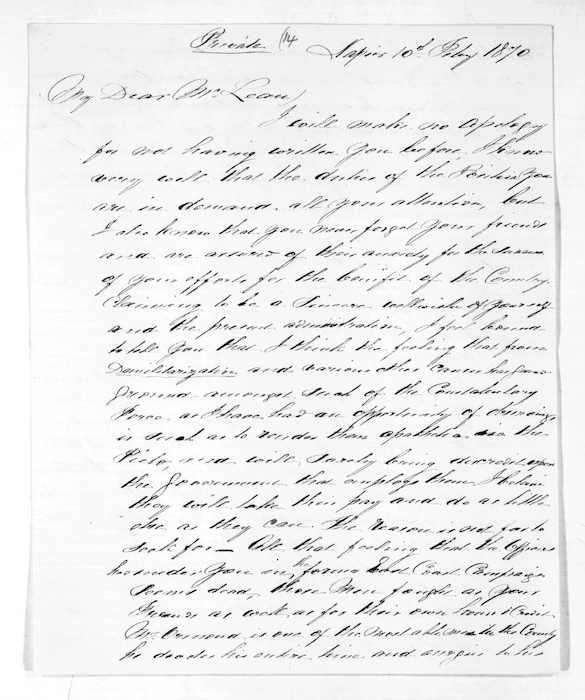 Private (14
Napier 10th Feby 1870
My Dear McLean
I will make no apology
for not having written you before, I know
very well that the duties of the Position you
are in demand all your attention, but
I also know that you never forget your friends
and are assured of their anxiety for the success
of your efforts for the benefit of the Country.
Claiming to be a sincere wellwisher of yourself
and the present administration, I feel bound
to tell you that I think the feeling that from
Demilitarization and various other causes has gained
ground amongst such of the Constabulary
Force as I have had an opportunity of observing
is such as to render them apathetic in the
Field and will surely bring discredit upon
the Government that employs them. I believe
they will take their pay and do as little
else as they can. The reason is not far to
seek for — All that feeling that the Officers
had under you in the former East Coast Campaign
seems dead, those Men fought as your
Friends as well as for their own honor & Credit
Mr Ormond is one of the most able men in the Country
he devotes his entire time and energies to his